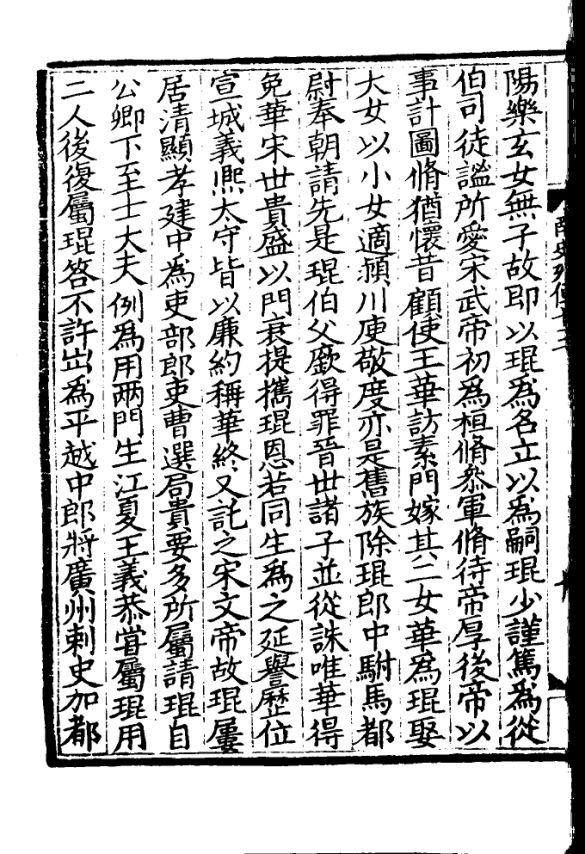 陽樂玄女無子故即以琨為名立以為嗣琨少謹篤為從
伯司徒謐所愛宋武帝初為桓脩叅軍脩待帝厚後帝以
事計圖脩猶懷昔顧使王華訪素門嫁其二女華為琨娶
大女以小女適潁川庾敬度亦是舊族除琨郎中駙馬都
尉奉朝請先是琨伯父廞得罪晉世諸子並從誅唯華得
免華宋世貴盛以門衰提攜琨恩若同生為之延譽歷位
宣城義熈太守皆以廉約稱華終又託之宋文帝故琨屢
居清顯孝建中為吏部郎吏曹選局貴要多所屬請琨自
公卿下至士大夫例為用兩門生江夏王義恭甞屬琨用
二人後復屬琨荅不許出為平越中郎將廣州刺史加都
南史列傳十三